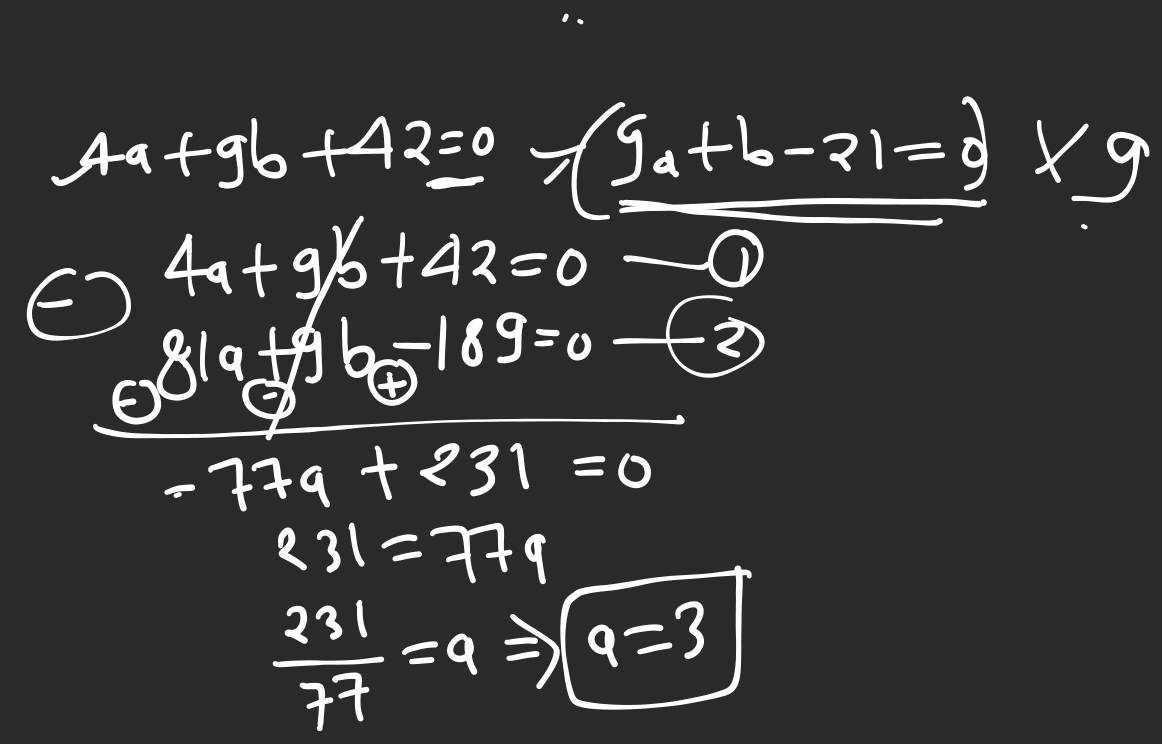 4a+9b+42=0 (9a+b-21=0) × 9
4a+9b+42=0 — ①
⊖ 81a+9b-189=0 — ②
⊖ ⊖ ⊕
-77a + 231 = 0
231 = 77a
231/77 = a ⇒ a=3